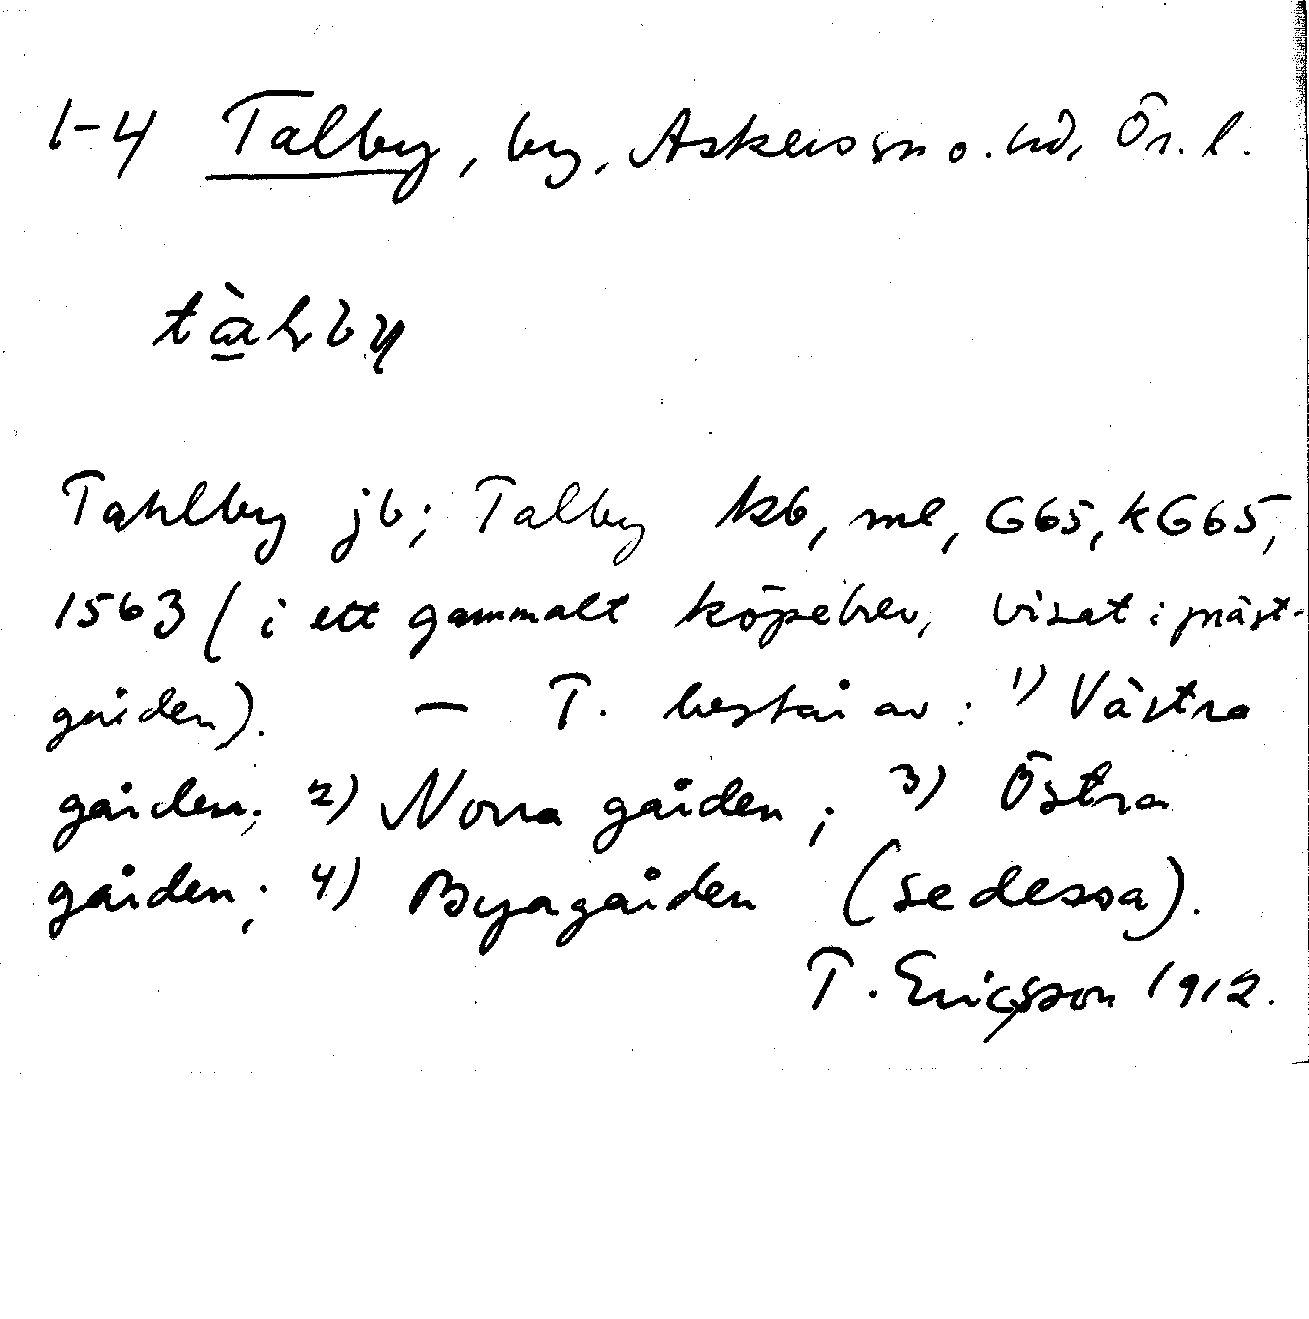 1-4 Talby, by, Askers sn o. hd, Ör. l.
tàlby
Tahlby jb; Talby kb, ml, G65, kG65,
1563 (i ett gammalt köpebrev, visat i präst-
gården). — T. består av: 1) Västra
gården; 2) Norra gården; 3) Östra
gården; 4) Byagården (se dessa).
T. Ericsson 1912.